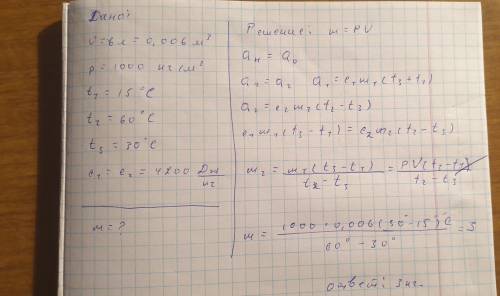 Дано:
V=6л=0,006м³
ρ=1000 кг/м³
t₁ = 15 °C
t₂ = 60 °C
t₃ = 30 °C
c₁ = c₂ = 4200 Дж/кг
m = ?
Решение: m = PV
Qн = Qo
Q₁ = Q₂ Q₁ = c₁m₁(t₃+t₁)
Q₂ = c₂m₂(t₂-t₃)
c₁m₁(t₃-t₁) = c₂m₂(t₂-t₃)
m₂ = m₁(t₃-t₁) / t₂-t₃ = PV(t₃-t₁) / t₂-t₃
m = 1000·0,006(30°-15°)°C / 60°-30° = 3
ответ: 3кг.